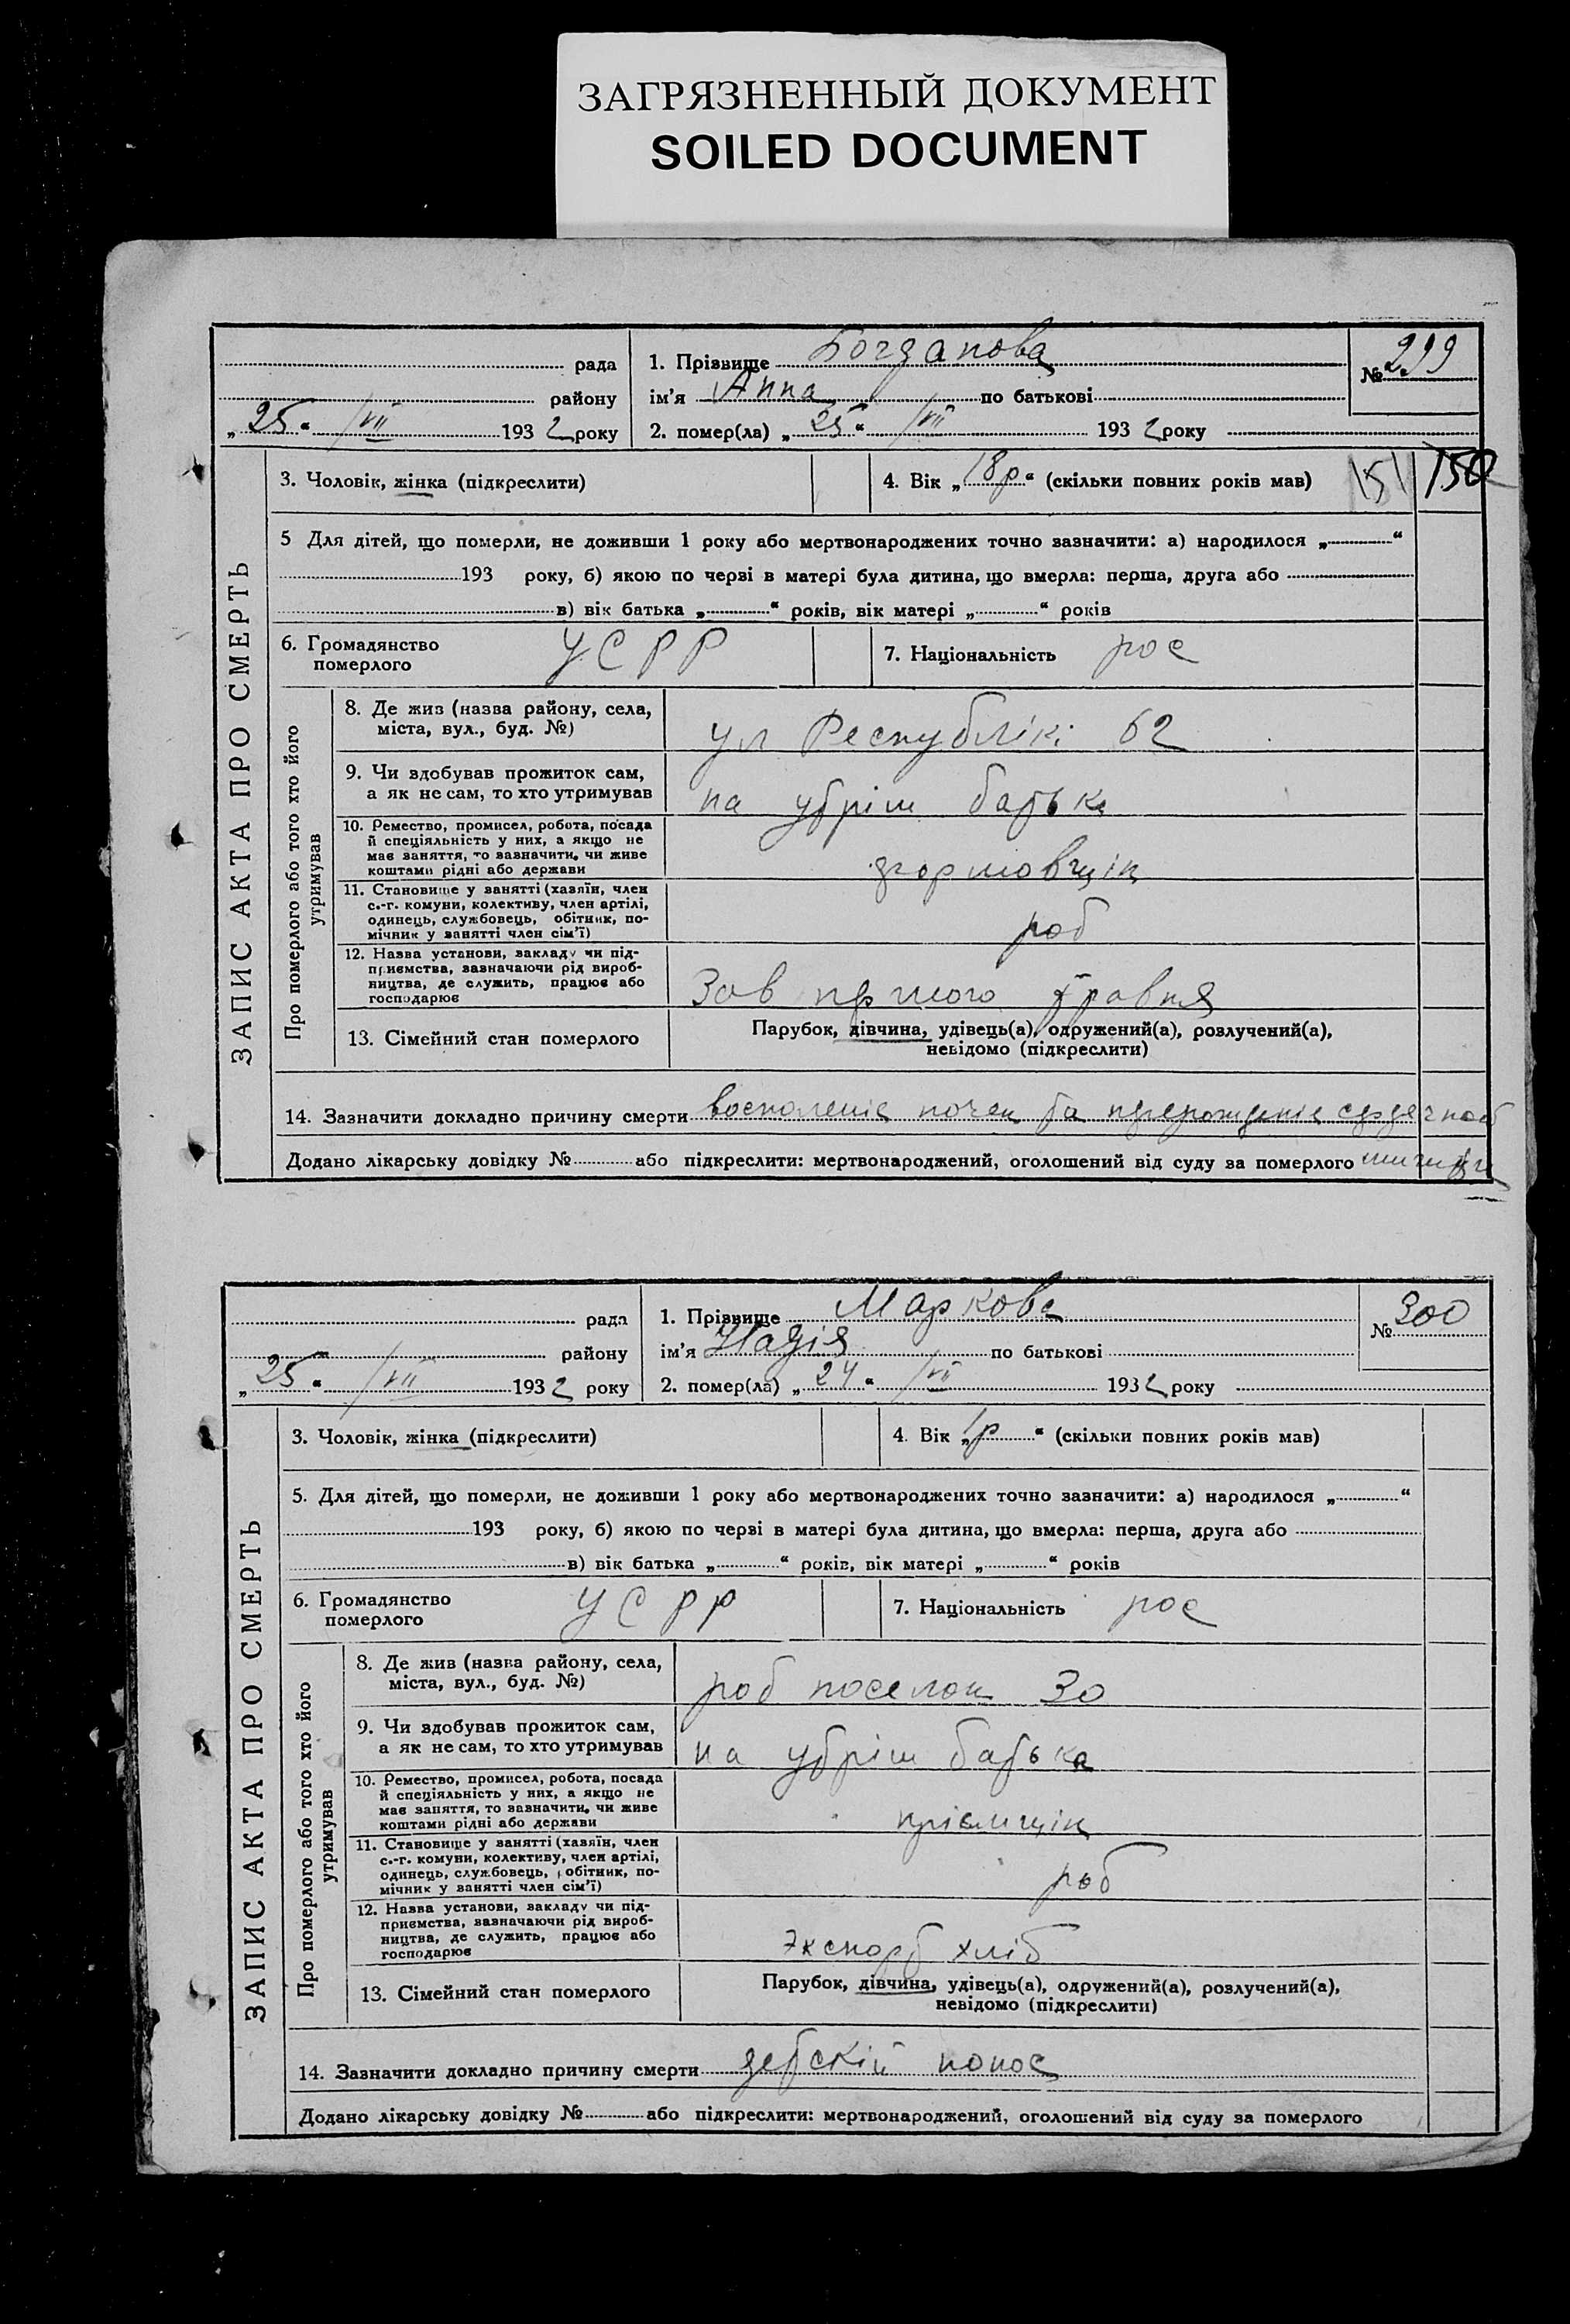 ЗАГРЯЗНЕННЫЙ ДОКУМЕНТ
SOILED DOCUMENT
рада
району
„25“ /VII 1932 року
1. Прізвище Богданова
ім'я Анна по батькові
2. помер(ла) „25“ /VII 1932 року
№ 299
ЗАПИС АКТА ПРО СМЕРТЬ
3. Чоловік, жінка (підкреслити)
4. Вік „18р“ (скільки повних років мав)
151 150
5 Для дітей, що померли, не доживши 1 року або мертвонароджених точно зазначити: а) народилося „ “
193 року, б) якою по черзі в матері була дитина, що вмерла: перша, друга або
в) вік батька „ “ років, вік матері „ “ років
6. Громадянство
померлого
УСРР
7. Національність рос
Про померлого або того хто його
утримував
8. Де жив (назва району, села,
міста, вул., буд. №)
ул Республікі 62
9. Чи здобував прожиток сам,
а як не сам, то хто утримував
на утрім батька
10. Ремество, промисел, робота, посада
й спеціяльність у них, а якщо не
має заняття, то зазначити, чи живе
коштами рідні або держави
11. Становище у занятті (хазяїн, член
с.-г. комуни, колективу, член артілі,
одинець, службовець, обітник, по-
мічник у занятті член сім'ї)
роб
12. Назва установи, закладу чи під-
приємства, зазначаючи рід вироб-
ництва, де служить, працює або
господарює
Зав першого травня
13. Сімейний стан померлого
Парубок, дівчина, удівець(а), одружений(а), розлучений(а),
невідомо (підкреслити)
14. Зазначити докладно причину смерти воспаленіе почек та перерожденіе сердечной
Додано лікарську довідку № або підкреслити: мертвонароджений, оголошений від суду за померлого
рада
району
„25“ /VII 1932 року
1. Прізвище Маркова
ім'я Надія по батькові
2. помер(ла) „24“ /VII 1932 року
№ 300
ЗАПИС АКТА ПРО СМЕРТЬ
3. Чоловік, жінка (підкреслити)
4. Вік „1р“ (скільки повних років мав)
5. Для дітей, що померли, не доживши 1 року або мертвонароджених точно зазначити: а) народилося „ “
193 року, б) якою по черзі в матері була дитина, що вмерла: перша, друга або
в) вік батька „ “ років, вік матері „ “ років
6. Громадянство
померлого
УСРР
7. Національність рос
Про померлого або того хто його
утримував
8. Де жив (назва району, села,
міста, вул., буд. №)
роб поселок 30
9. Чи здобував прожиток сам,
а як не сам, то хто утримував
на утрім батька
10. Ремество, промисел, робота, посада
й спеціяльність у них, а якщо не
має заняття, то зазначити, чи живе
коштами рідні або держави
пріємщік
11. Становище у занятті (хазяїн, член
с.-г. комуни, колективу, член артілі,
одинець, службовець, обітник, по-
мічник у занятті член сім'ї)
роб
12. Назва установи, закладу чи під-
приємства, зазначаючи рід вироб-
ництва, де служить, працює або
господарює
Экспорт хліб
13. Сімейний стан померлого
Парубок, дівчина, удівець(а), одружений(а), розлучений(а),
невідомо (підкреслити)
14. Зазначити докладно причину смерти детскій понос
Додано лікарську довідку № або підкреслити: мертвонароджений, оголошений від суду за померлого